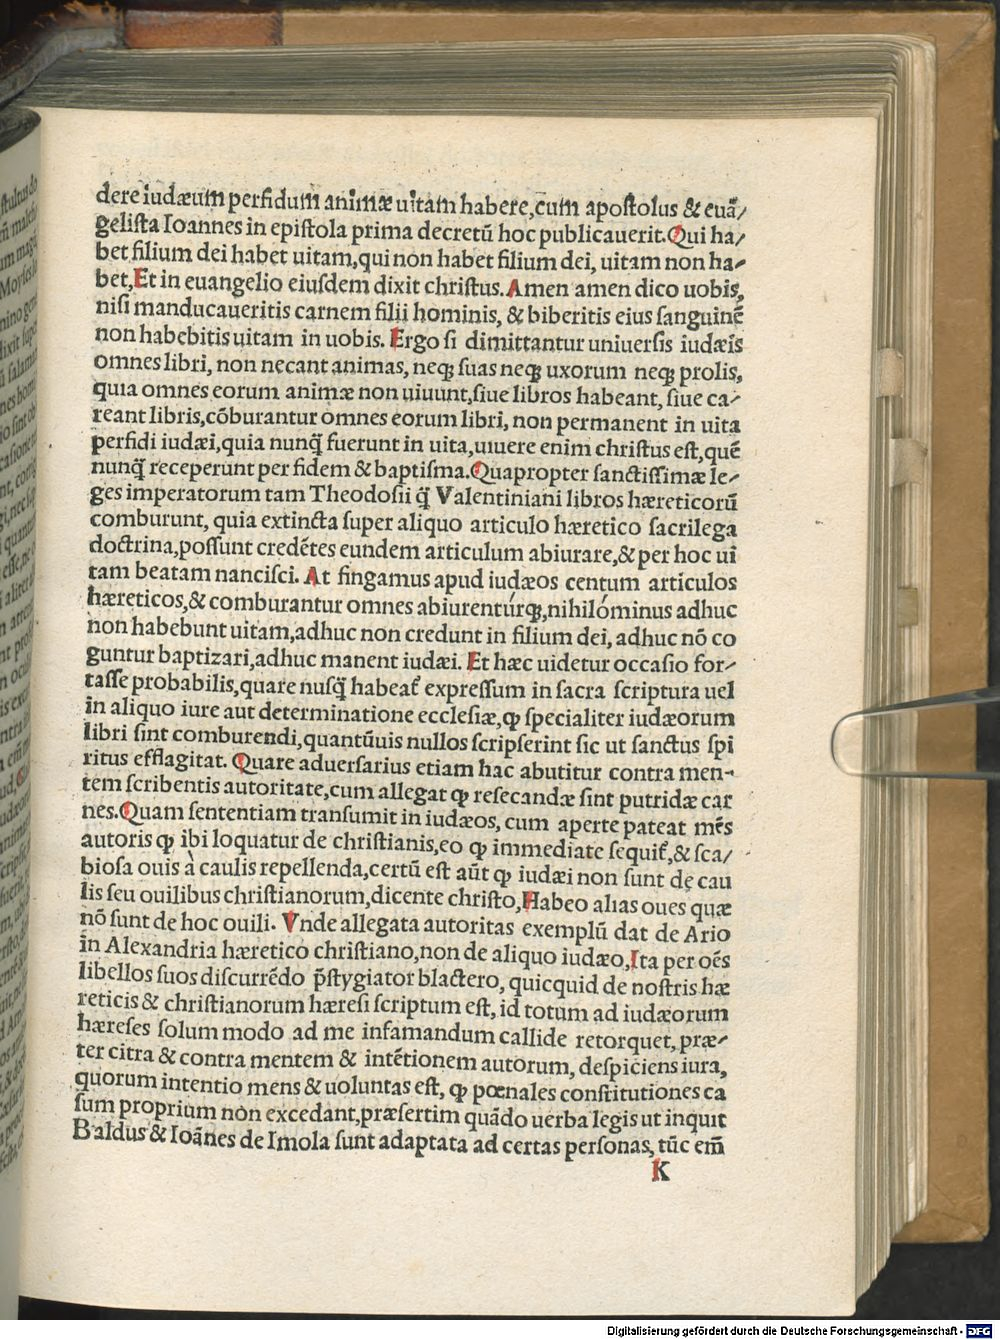 dere iudæum perfidum animæ uitam habere,cum apoſtolus & euã/
geliſta Ioannes in epiſtola prima decretũ hoc publicauerit.Qui ha/
bet filium dei habet uitam,qui non habet filium dei, uitam non ha/
bet,Et in euangelio eiuſdem dixit chriſtus.Amen amen dico uobis,
niſi manducaueritis carnem filii hominis, & biberitis eius ſanguinẽ
non habebitis uitam in uobis. Ergo ſi dimittantur uniuerſis iudæis
omnes libri, non necant animas, neq; ſuas neq; uxorum neq; prolis,
quia omnes eorum animæ non uiuunt,ſiue libros habeant, ſiue ca/
reant libris,cõburantur omnes eorum libri, non permanent in uita
perfidi iudæi,quia nunq̃ fuerunt in uita,uiuere enim chriſtus eſt,quẽ
nunq̃ receperunt per fidem & baptiſma.Quapropter ſanctiſſimæ le/
ges imperatorum tam Theodoſii q̃ Valentiniani libros hæreticorũ
comburunt, quia extincta ſuper aliquo articulo hæretico ſacrilega
doctrina,poſſunt credẽtes eundem articulum abiurare,& per hoc ui
tam beatam nanciſci. At fingamus apud iudæos centum articulos
hæreticos,& comburantur omnes abiurentúrq;,nihilóminus adhuc
non habebunt uitam,adhuc non credunt in filium dei, adhuc nõ co
guntur baptizari,adhuc manent iudæi. Et hæc uidetur occaſio for/
taſſe probabilis,quare nuſq̃ habeat᷑ expreſſum in ſacra ſcriptura uel
in aliquo iure aut determinatione eccleſiæ,ꝙ ſpecialiter iudæorum
libri ſint comburendi,quantũuis nullos ſcripſerint ſic ut ſanctus ſpi
ritus efflagitat. Quare aduerſarius etiam hac abutitur contra men/
tem ſcribentis autoritate,cum allegat ꝙ reſecandæ ſint putridæ car
nes.Quam ſententiam tranſumit in iudæos, cum aperte pateat mẽs
autoris ꝙ ibi loquatur de chriſtianis,eo ꝙ immediate ſequit᷑,& ſca/
bioſa ouis à caulis repellenda,certũ eſt aũt ꝙ iudæi non ſunt de cau
lis ſeu ouilibus chriſtianorum,dicente chriſto,Habeo alias oues quæ
nõ ſunt de hoc ouili. Vnde allegata autoritas exemplũ dat de Ario
in Alexandria hæretico chriſtiano,non de aliquo iudæo,Ita per oẽs
libellos ſuos diſcurrẽdo p̃ſtygiator blactero, quicquid de noſtris hæ
reticis & chriſtianorum hæreſi ſcriptum eſt, id totum ad iudæorum
hæreſes ſolum modo ad me infamandum callide retorquet, præ/
ter citra & contra mentem & intẽtionem autorum, deſpiciens iura,
quorum intentio mens & uoluntas eſt, ꝙ pœnales conſtitutiones ca
ſum proprium non excedant,præſertim quãdo uerba legis ut inquit
Baldus & Ioãnes de Imola ſunt adaptata ad certas perſonas, tũc em̃
K
Digitalisierung gefördert durch die Deutsche Forschungsgemeinschaft - DFG